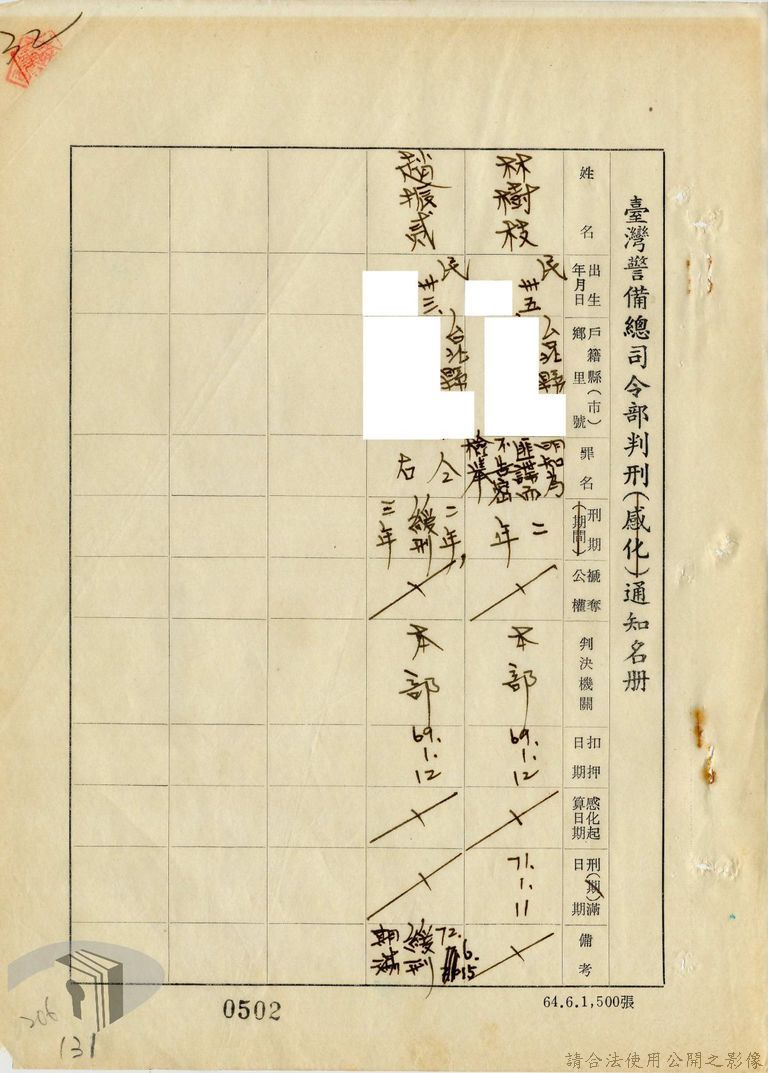 32
臺灣警備總司令部判刑(感化)通知名册
姓名
出生年月日
戶籍縣(市)鄉里號
罪名
刑期(期間)
褫奪公權
判決機關
扣押日期
感化起算日期
刑(期)滿日期
備考
林樹枝
民卅五、
台北縣
明知為匪諜而不告密檢舉
二年
本部
69.1.12
71.1.11
趙振貳
民卅三、
台北縣
仝右
二年,緩刑三年
本部
69.1.12
72.6.15緩刑期滿
64.6.1,500張
0502
206
131
請合法使用公開之影像